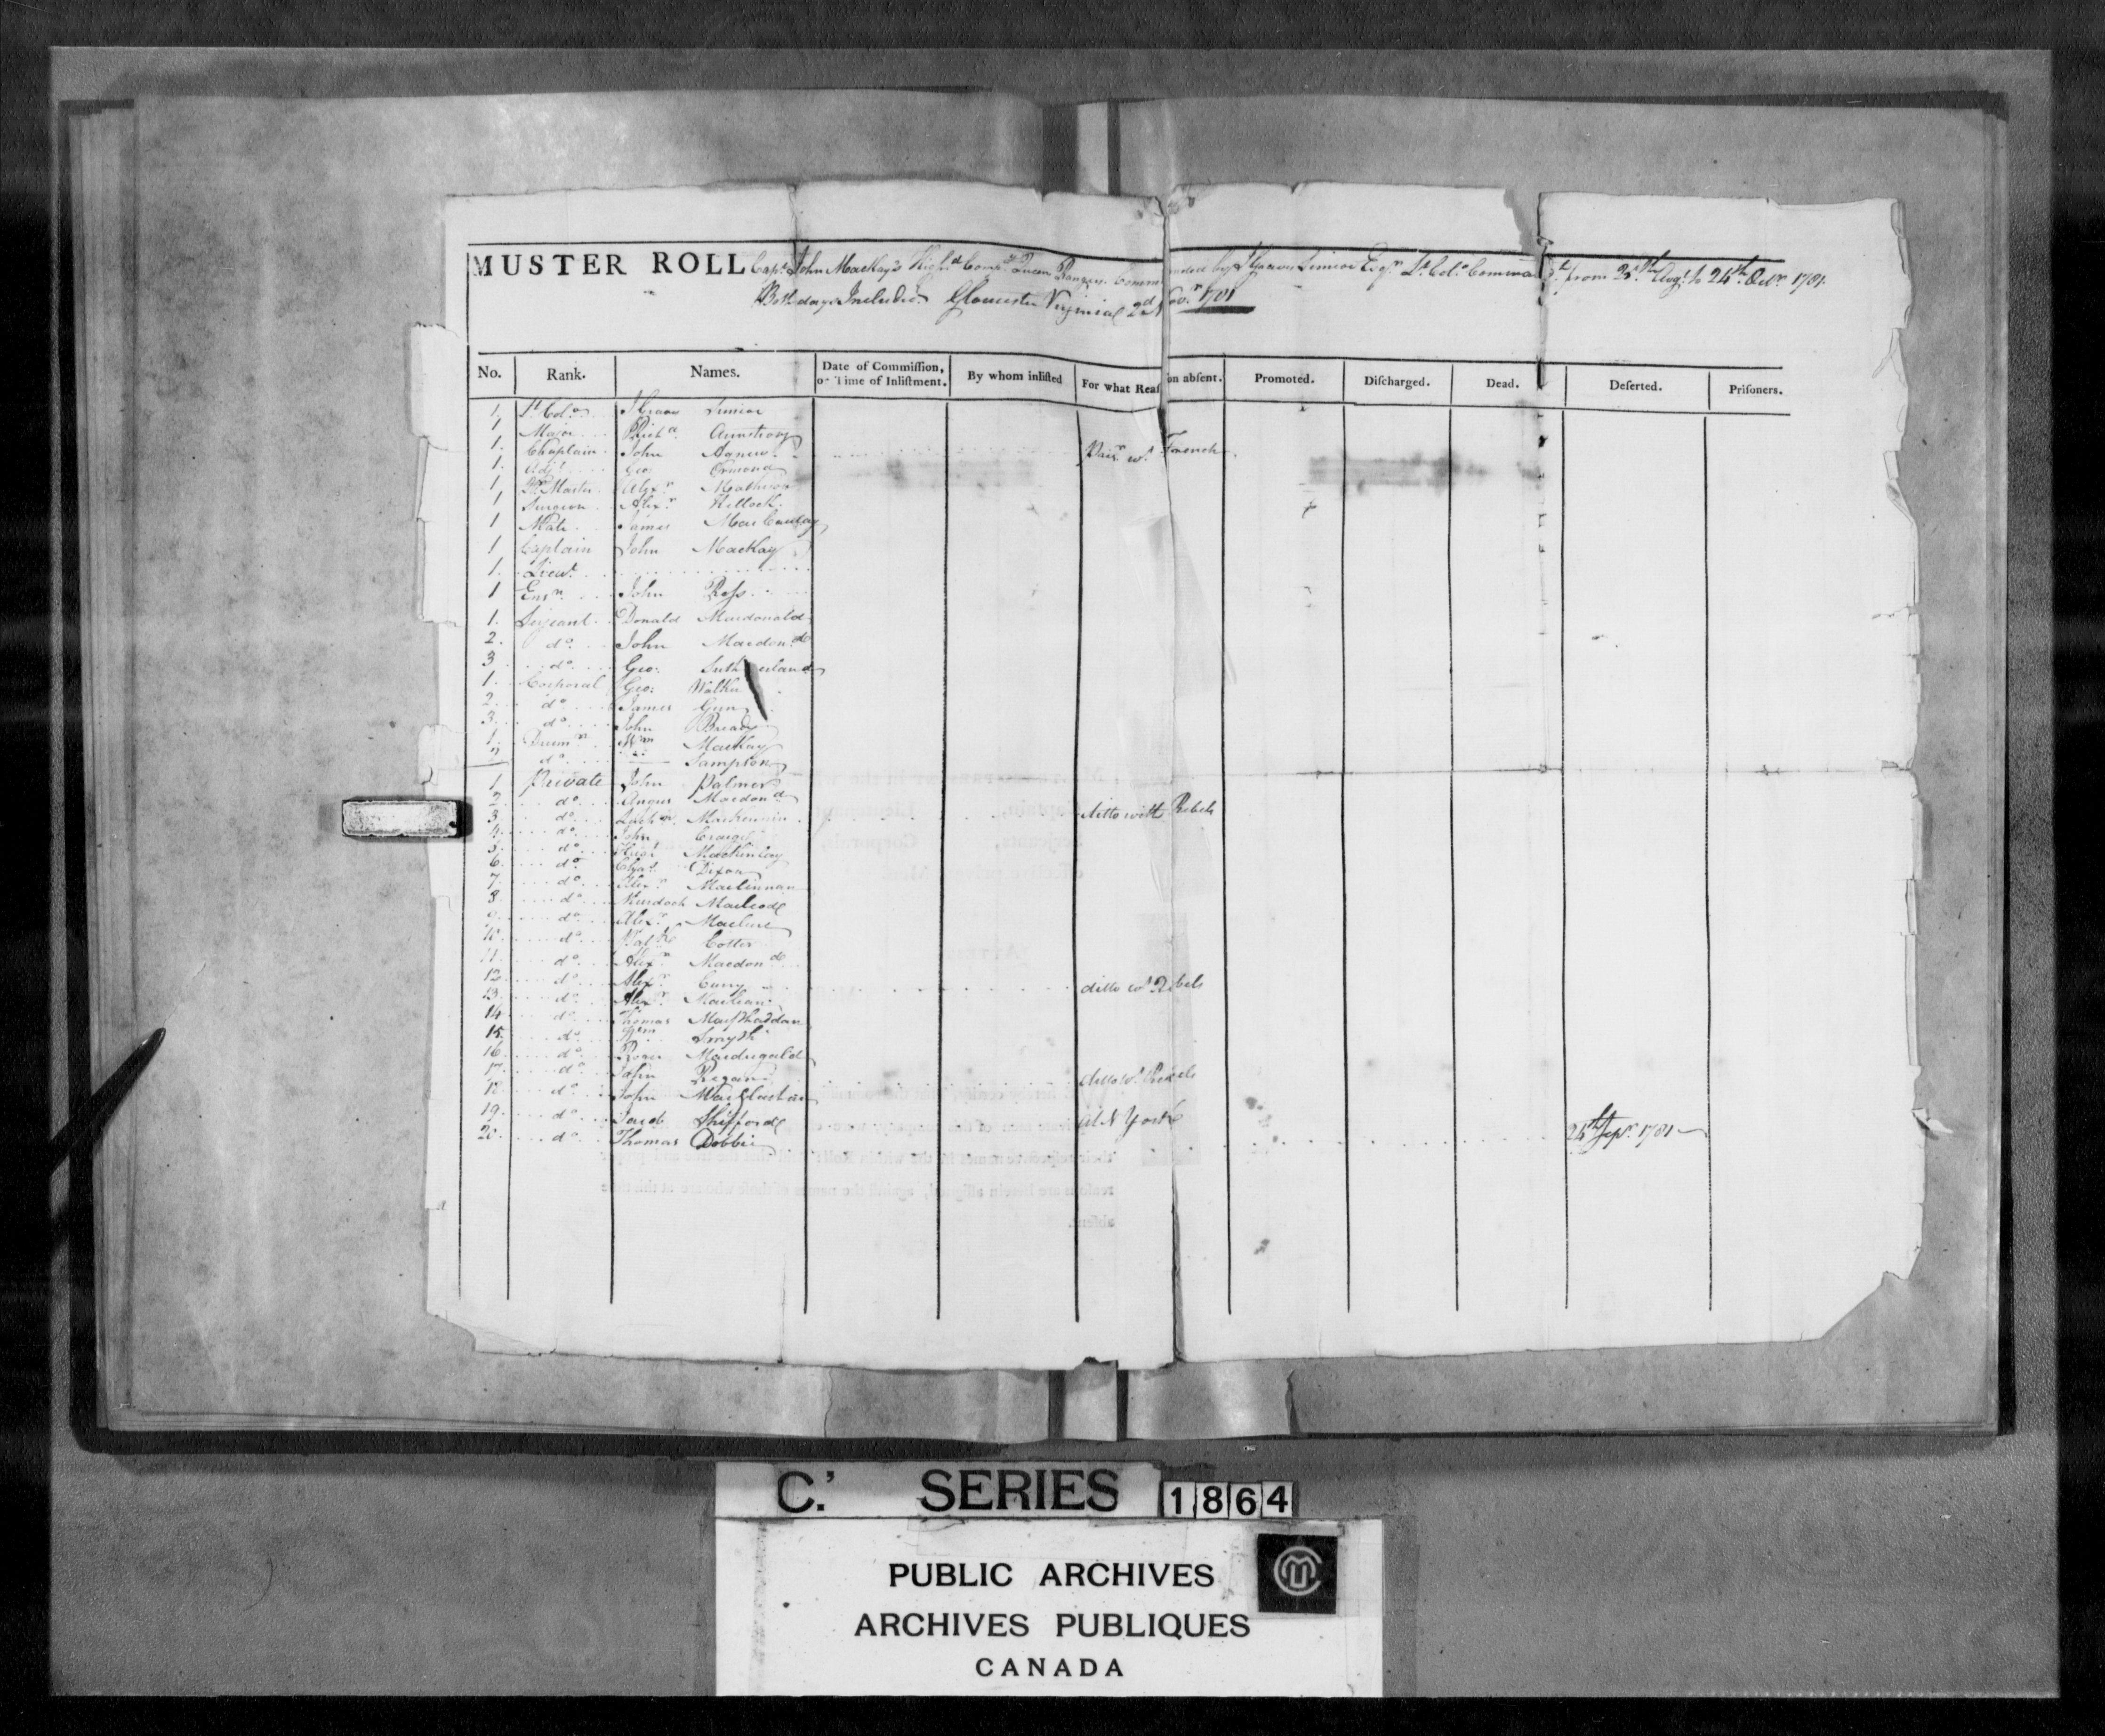 MUSTER ROLL Capt. John MacKay's High'd Comp'y Queens Rangers Commanded by J Graves Simcoe Esqr. Lt. Colo. Comma dt. from 25th Augt. to 24th Octr. 1781
Both days Included Gloucester Virginia 2d Novr. 1781
No. Rank. Names. Date of Commiſſion, or Time of Inliſtment. By whom inliſted For what Reaſon abſent. Promoted. Diſcharged. Dead. Deſerted. Priſoners.
1. Lt. Colo. J Graves Simcoe
1 Major Richd. Armstrong
1. Chaplain John Agnew Prisr. wt. French
1. Adjt. Geo: Ormond
1 Qr. Master Alexr. Matheson
1 Surgeon Alexr. Kellock
1 Mate James MacCaulay
1 Captain John MacKay
1. Lieut.
1 Ensn. John Ross
1. Serjeant Donald Macdonald
2. do. John Macdond.
3 do. Geo: Sutherland
1. Corporal Geo: Walker
2. do. James Gun
3. do. John Bready
1. Drumr. Wm MacKay
2 do. Sampson
1 Private John Palmer
2 do. Angus Macdond.
3. do. Lachn. MacKinnin ditto with Rebels
4. do. John Craigie
5. do. Hugh MacKinlay
6. do. Chas. Dixon
7. do. Alexr. Maclinnan
8 do. Murdoch Macleod
9. do. Alexr. Maclure
10. do. Patk. Cotter
11. do. Alexr. Macdond.
12. do. Alexr. Curry ditto wt. Rebels
13. do. Alexr. Maclean
14 do. Thomas
15. do. Wm Smyth
16. do. Roger Macdugald
17. do. John Regan ditto wt. Rebels
18 do. John
19. do. Jacob Shifford at N York
20. do. Thomas Dobbie 24th Sepr. 1781
C.' SERIES 1864
PUBLIC ARCHIVES
ARCHIVES PUBLIQUES
CANADA